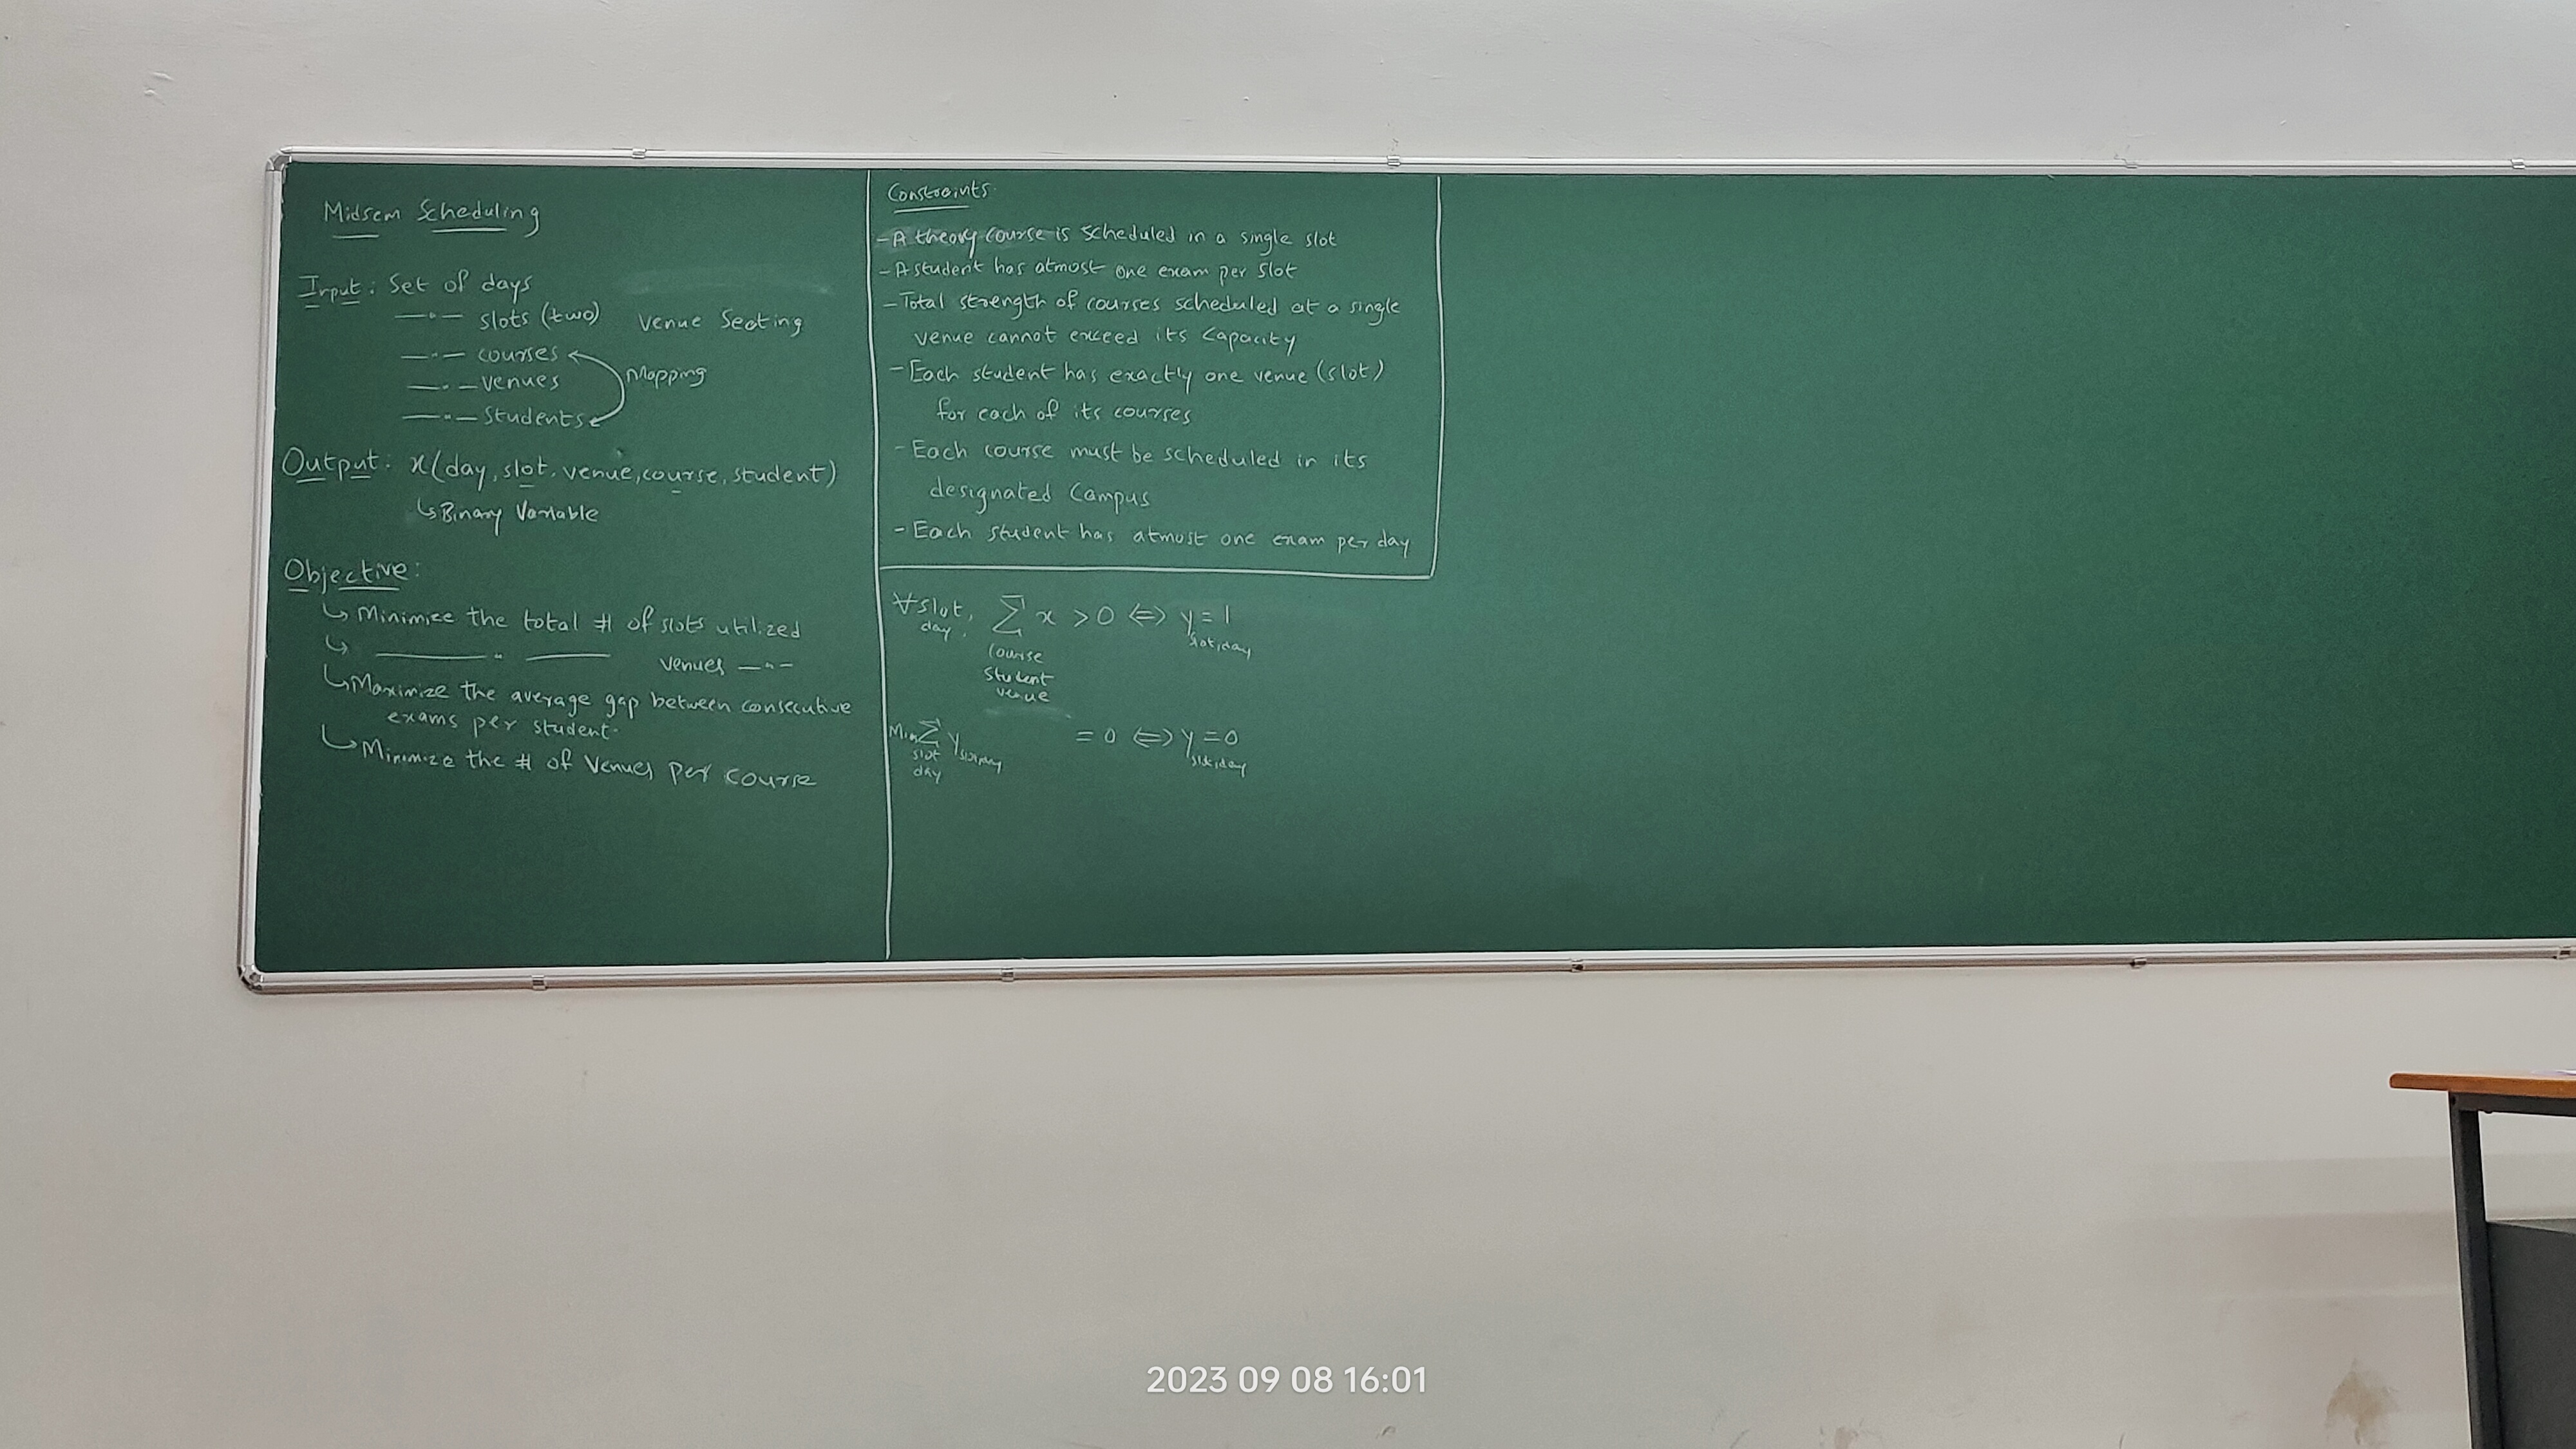 Midsem Scheduling
Input: Set of days
—"— slots (two) Venue Seating
—"— courses
Mapping
—"— venues
—"— Students
Output: x(day, slot, venue, course, student)
↳ Binary Variable
Objective:
↳ Minimize the total # of slots utilized
↳ ——"—— venues —"—
↳ Maximize the average gap between consecutive
exams per student.
↳ Minimize the # of Venues per course
Constraints
- A theory course is scheduled in a single slot
- A student has atmost one exam per slot
- Total strength of courses scheduled at a single
venue cannot exceed its capacity
- Each student has exactly one venue (slot)
for each of its courses
- Each course must be scheduled in its
designated Campus
- Each student has atmost one exam per day
∀ slot, ∑ x > 0 ⇔ y = 1
day, slot,day
course
student
venue
Min ∑ y = 0 ⇔ y = 0
slot slot,day slot,day
day
2023 09 08 16:01